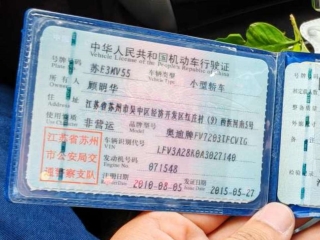 中华人民共和国机动车行驶证
Vehicle License of the People's Republic of China
号牌号码 苏E3MV55 车辆类型 小型轿车
所有人 顾明华
住址 江苏省苏州市吴中区经济开发区红庄村(9)西蔡河南5号
使用性质 非营运 品牌型号 奥迪牌FV7203TFCVTG
江苏省苏州市公安局交通警察支队
车辆识别代号 LFV3A28K0A3027140
发动机号码 071548
注册日期 2010-08-05 发证日期 2015-05-27